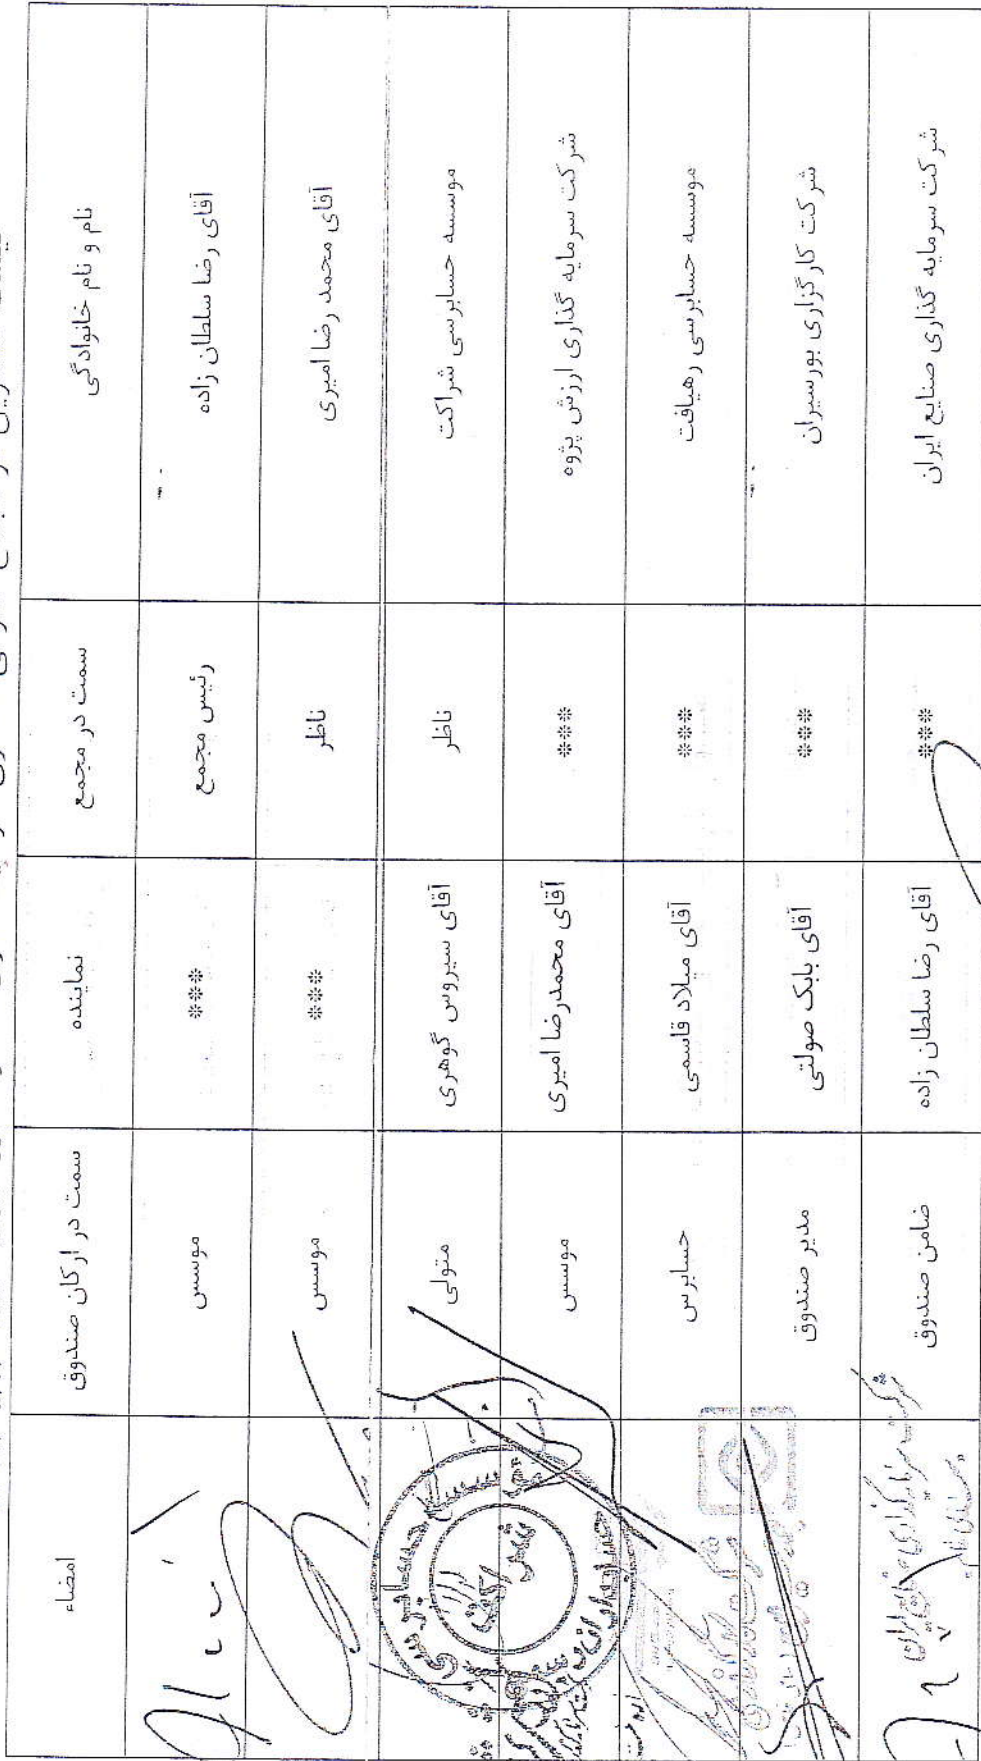 نام و نام خانوادگی	سمت در مجمع	نماینده	سمت در ارکان صندوق	امضاء
آقای رضا سلطان زاده	رئیس مجمع	***	موسس
آقای محمد رضا امیری	ناظر	***	موسس
موسسه حسابرسی شراکت	ناظر	آقای سیروس گوهری	متولی
شرکت سرمایه گذاری ارزش پژوه	***	آقای محمدرضا امیری	موسس
موسسه حسابرسی رهیافت	***	آقای میلاد قاسمی	حسابرس
شرکت کارگزاری بورسیران	***	آقای بابک صولتی	مدیر صندوق
شرکت سرمایه گذاری صنایع ایران	***	آقای رضا سلطان زاده	ضامن صندوق
موسسه حسابرسی
شراکت
شرکت سرمایه گذاری صنایع ایران